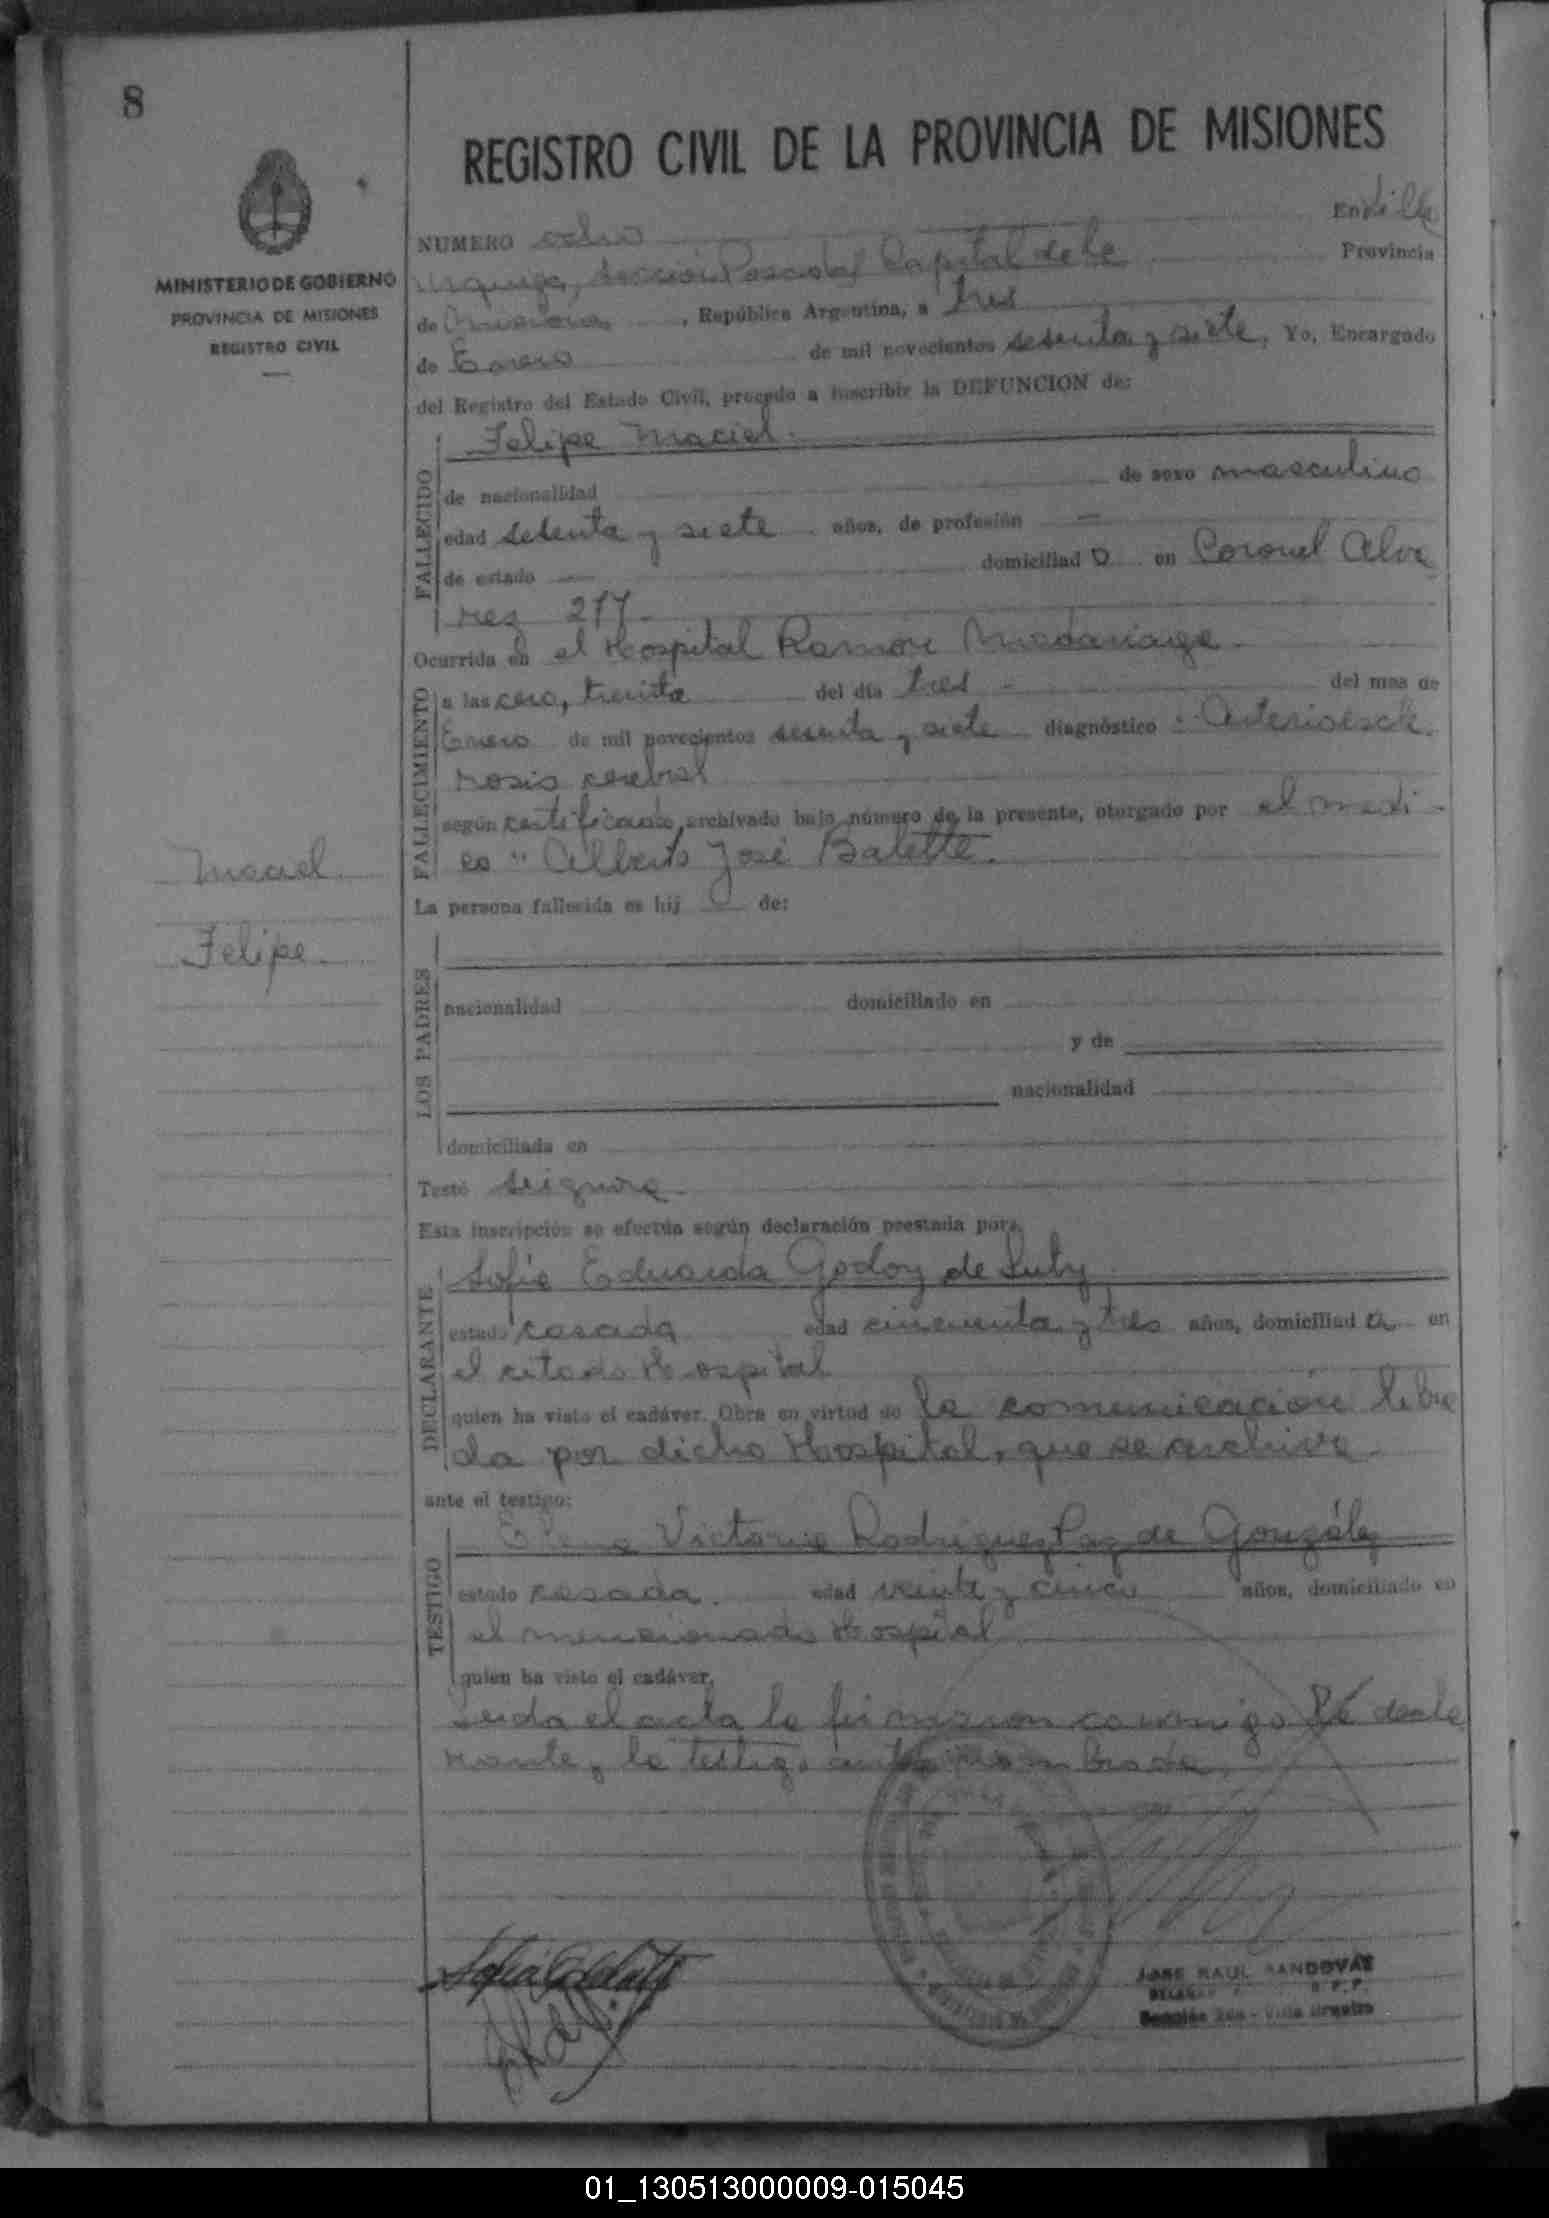 8
REGISTRO CIVIL DE LA PROVINCIA DE MISIONES
MINISTERIO DE GOBIERNO
PROVINCIA DE MISIONES
REGISTRO CIVIL
NUMERO ocho En Villa
Urquiza, Sección Posadas Capital de la Provincia
de Misiones, República Argentina, a tres
de Enero de mil novecientos setenta y siete, Yo, Encargado
del Registro del Estado Civil, procedo a inscribir la DEFUNCION de:
Felipe Maciel.
FALLECIDO
de nacionalidad de sexo masculino
edad setenta y siete años, de profesión —
de estado — domiciliad o en Coronel Alva
rez 277.
Ocurrida en el Hospital Ramón Madariaga.
FALLECIMIENTO
a las cero, treinta del día tres - del mes de
Enero de mil novecientos setenta y siete diagnóstico: Arterioescle
rosis cerebral
según certificado, archivado bajo número de la presente, otorgado por el medi-
co " Alberto José Balette.
Maciel
Felipe.
La persona fallecida es hij o de:
LOS PADRES
nacionalidad domiciliado en
y de
nacionalidad
domiciliada en
Testó se ignora.
Esta inscripción se efectúa según declaración prestada por:
DECLARANTE
Sofia Eduarda Godoy de Luty
estado casada edad cincuenta y tres años, domiciliad a en
el citado Hospital
quien ha visto el cadáver. Obra en virtud de la comunicación libra
da por dicho Hospital, que se archiva.
ante el testigo:
TESTIGO
Elena Victoria Rodríguez Paz de González
estado casada. edad veinte y cinco años, domiciliado en
el mencionado Hospital
quien ha visto el cadáver.
Leida el acta la firmaron conmigo la decla
rante, y la testigo antes nombrada.
JOSE RAUL SANDOVAL
Sección 2da - Villa Urquiza
01_130513000009-015045